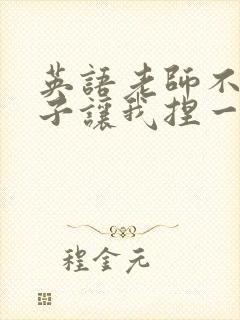 英語老師不
子讓我捏一
程金元